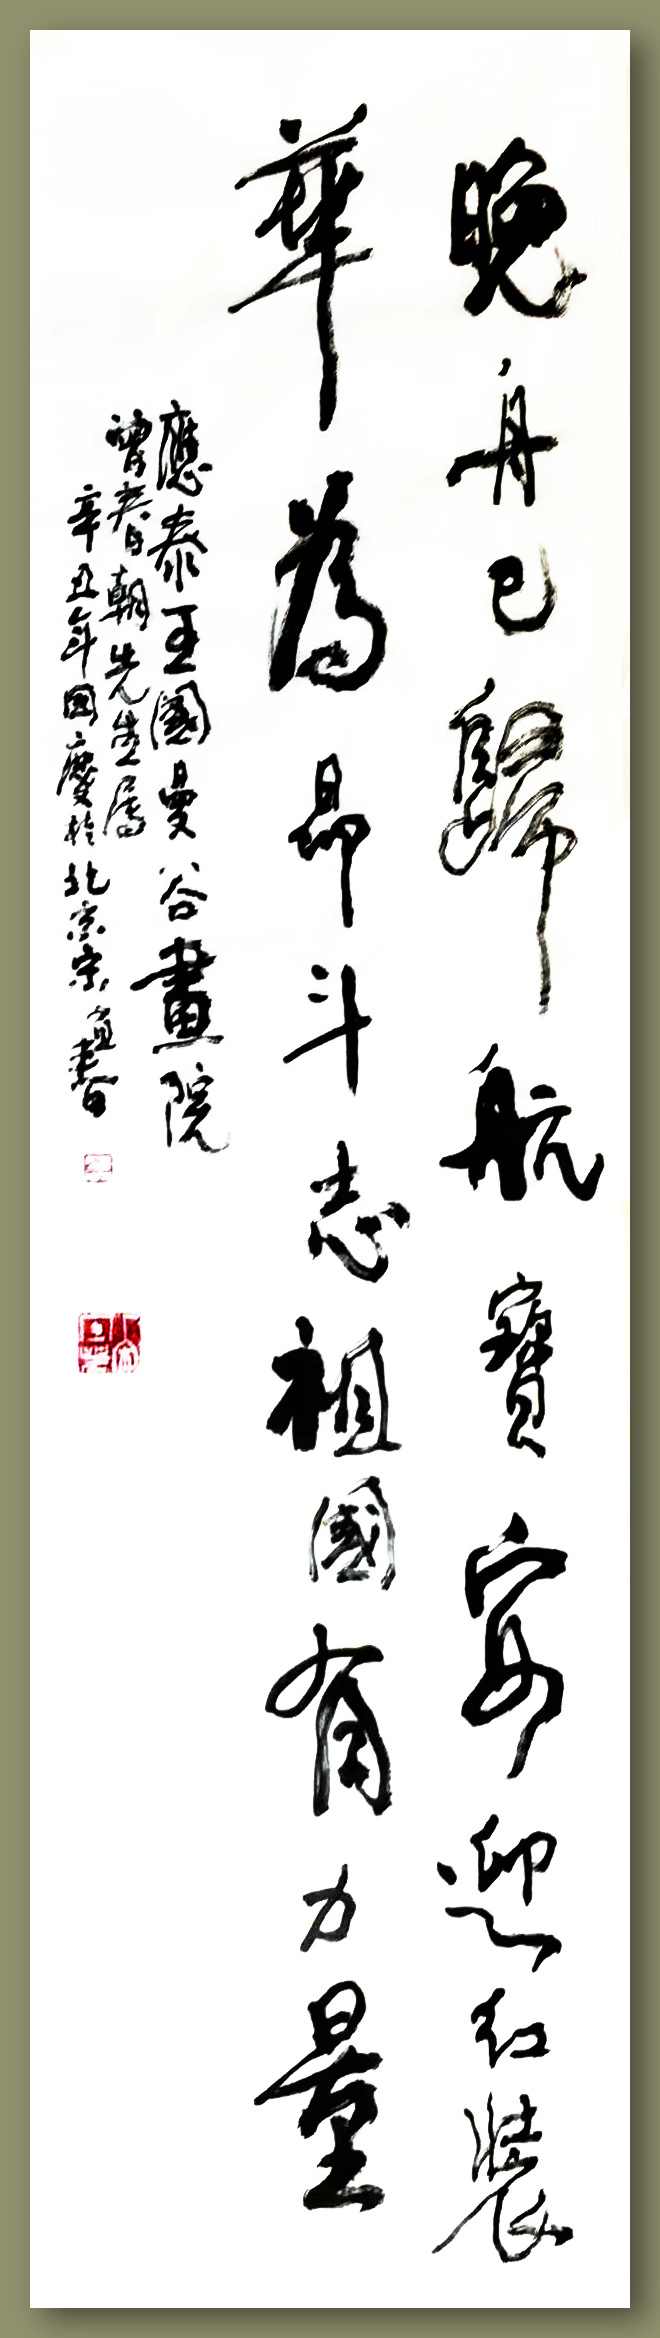 晚舟已歸航寶安迎红裝
華為昂斗志祖國有力量
應泰王國曼谷畫院
曾春朝先生属
辛丑年國慶於北京宗宜書